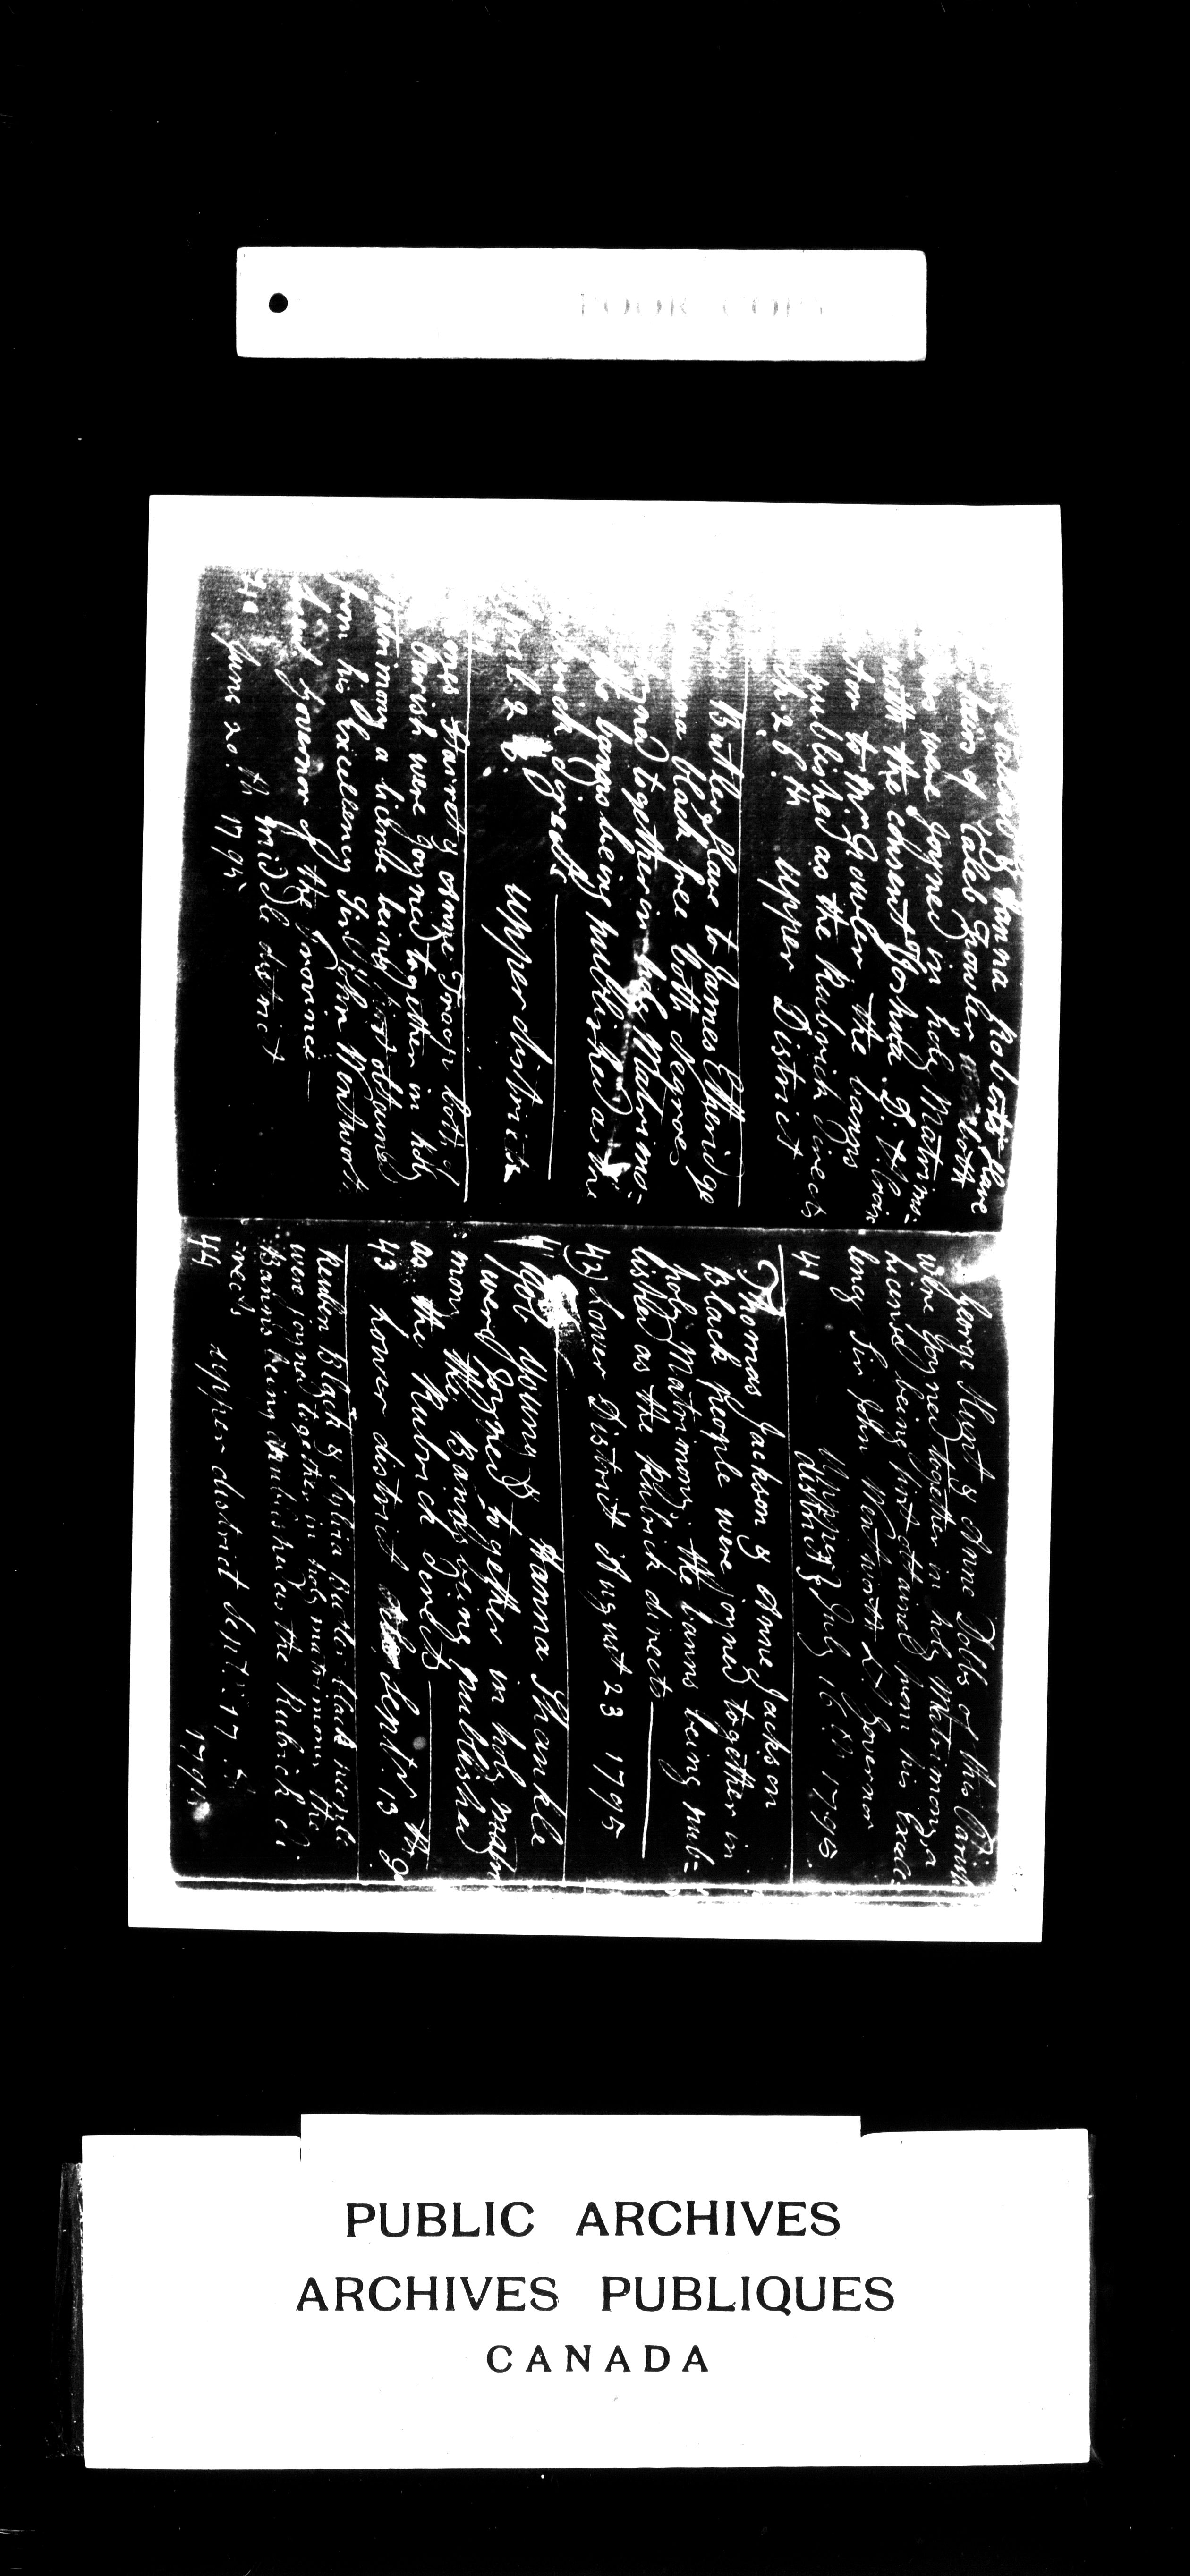 POOR COPY
& Hanna Roberts slave
Caleb Fowler both
were joyned in holy Matrimo=
with the consent of Joshua
to Mr Fowler the banns
published as the Rubrick directs
28th upper District
Butler slave to James Etheridge
black free both Negroes
joyned together in holy Matrimo=
the banns being published as the
upper district
& Anne Troop both of
Parish were joyned together in holy
Matrimony a license being first obtained
from his Excellency Sir John Wentworth
Governor of the Province
middle district
June 20th 1795
George Hunt & Anne Dobbs of this Parish
were joyned together in holy Matrimony a
license being first obtained from his Excel=
lency Sir John Wentworth Lt Governor
July 16th 1795.
41 district
Thomas Jackson & Anne Jackson
Black people were joyned together in
holy Matrimony, the banns being pub=
lished as the Rubrick directs
42 Lower District August 23 1795
Job Young & Hanna Shankle
were joyned together in holy matri
mony the Bands being published
as the Rubrick directs
43 Lower district Sept. 13
Reuben Black & Julia Butler black people
were joyned together in holy matrimony the
Banns being published as the Rubrick di
rects
44 upper district Sept. 17
1795
PUBLIC ARCHIVES
ARCHIVES PUBLIQUES
CANADA